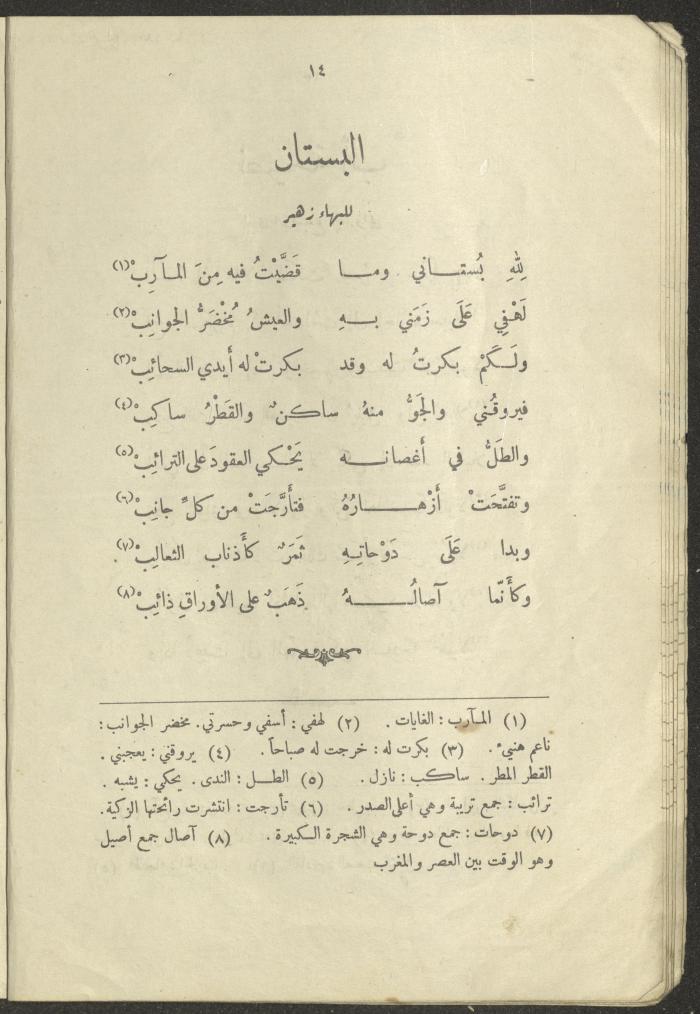 ١٤
البستان
للبهاء زهير
لِلّٰهِ بُستـاني ومـا قَضَّيْتُ فيه مِنَ المـآرِبْ (١)
لَهْفِي عَلَى زَمَني بـهِ والعيشُ مُخْضَرُّ الجوانِبْ (٢)
ولَـكَمْ بكرتُ له وقد بكرتْ له أيدي السحائِبْ (٣)
فيروقُني والجَوُّ منهُ ساكنٌ والقَطْرُ ساكِبْ (٤)
والطَلُّ في أَغصانـه يَحْكي العقودَ على الترائِبْ (٥)
وتفتَّحَتْ أَزْهـارُهُ فتأَرَّجَتْ من كلِّ جانِبْ (٦)
وبدا عَلَى دَوْحاتِـهِ ثَمَرٌ كأَذناب الثعالِبْ (٧).
وكأَنّما آصالُـهُ ذَهَبٌ على الأوراقِ ذائِبْ (٨)
(١) المـآرب : الغايات . (٢) لهفي : أسفي وحسرتي . مخضر الجوانب :
ناعم هنيء . (٣) بكرت له : خرجت له صباحاً . (٤) يروقني : يعجبني .
القطر المطر . ساكب : نازل . (٥) الطـل : الندى . يحكي : يشبه .
ترائب : جمع تريبة وهي أعلى الصدر . (٦) تأرجت : انتشرت رائحتها الزكية .
(٧) دوحات : جمع دوحة وهي الشجرة الكبيرة . (٨) آصال جمع أصيل
وهو الوقت بين العصر والمغرب